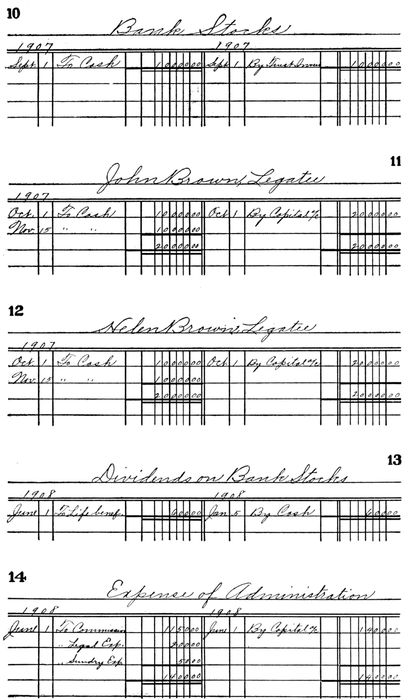 10
Bank Stocks
1907 1907
Sept 1 To Cash 1000000 Sept 1 By Trust 1000000
11
John Brown, Legatee
1907
Oct. 1 To Cash 1000000 Oct 1 By Capital a/c 2000000
Nov. 15 " " 1000000
2000000 2000000
12
Helen Brown, Legatee
1907
Oct. 1 To Cash 1000000 Oct. 1 By Capital a/c 2000000
Nov. 15 " " 1000000
2000000 2000000
13
Dividends on Bank Stocks
1908 1908
June 1 To Life benef. 60000 Jan 5 By Cash 60000
14
Expense of Administration
1908 1908
June 1 To Commission 115000 June 1 By Capital a/c 140000
" Legal Exp. 20000
" Sundry Exp. 5000
140000 140000